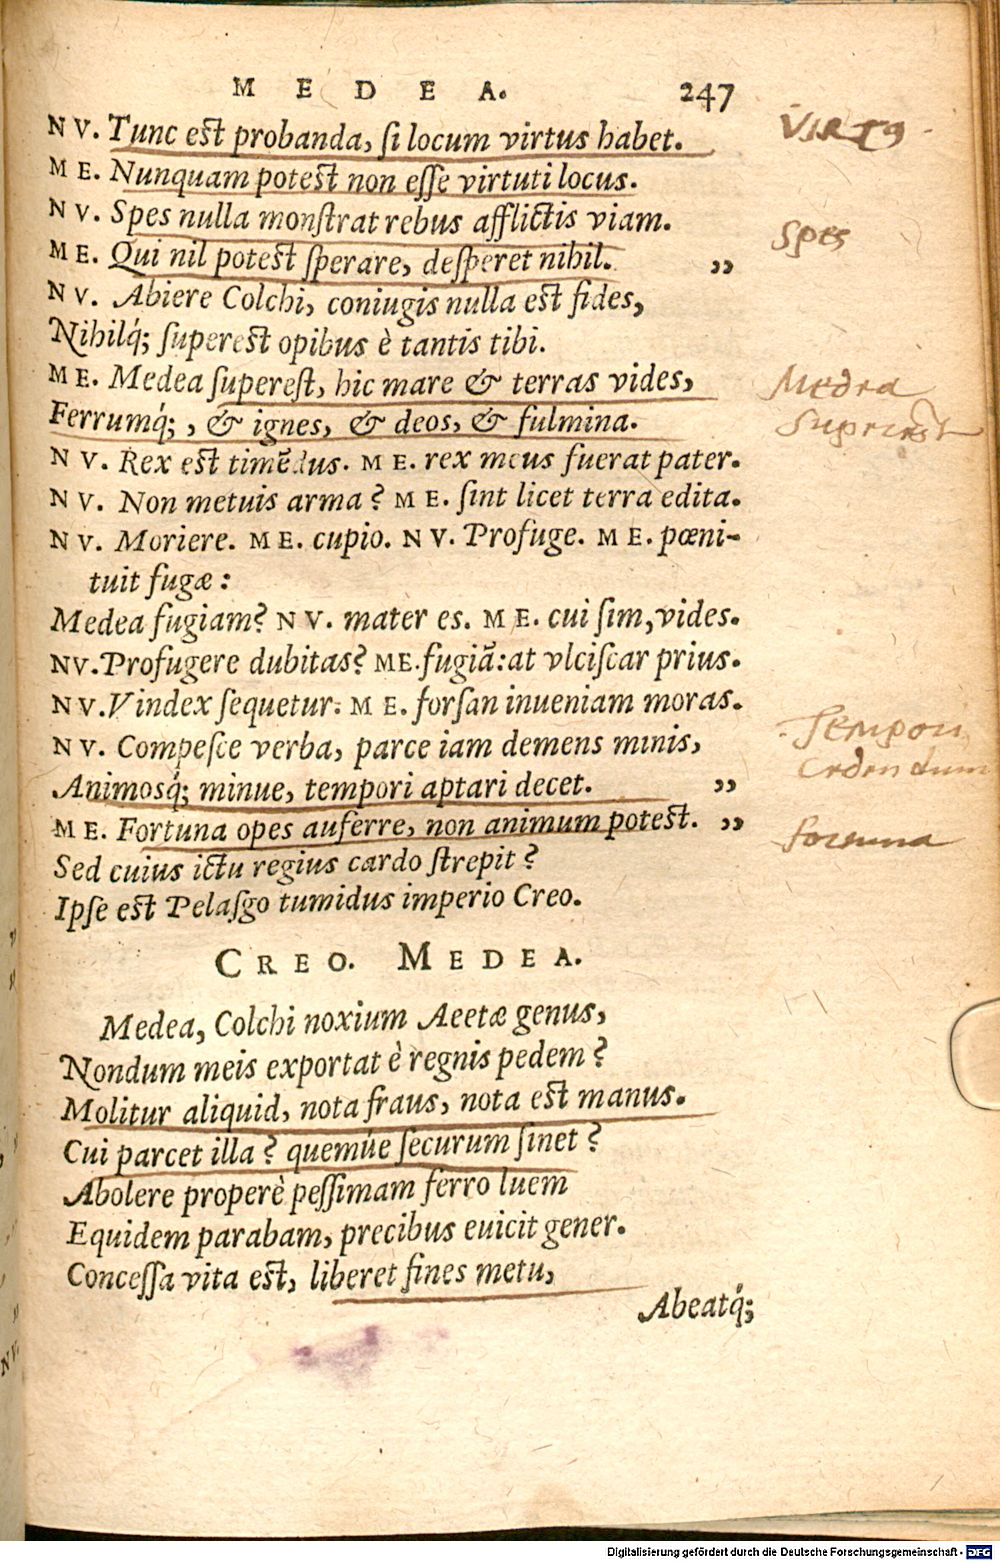 MEDEA. 247
NV. Tunc est probanda, si locum virtus habet. VIRT9
ME. Nunquam potest non esse virtuti locus.
NV. Spes nulla monstrat rebus afflictis viam. Spes
ME. Qui nil potest sperare, desperet nihil. ,,
NV. Abiere Colchi, coniugis nulla est fides,
Nihilq́; superest opibus è tantis tibi.
ME. Medea superest, hic mare & terras vides, Medea
Ferrumq́; , & ignes, & deos, & fulmina. superest
NV. Rex est timẽdus. ME. rex meus fuerat pater.
NV. Non metuis arma? ME. sint licet terra edita.
NV. Moriere. ME. cupio. NV. Profuge. ME. pœni-
tuit fugæ:
Medea fugiam? NV. mater es. ME. cui sim, vides.
NV. Profugere dubitas? ME. fugiã: at vlciscar prius.
NV. Vindex sequetur. ME. forsan inueniam moras.
NV. Compesce verba, parce iam demens minis, Tempori
Animosq́; minue, tempori aptari decet. ,, cedendum
ME. Fortuna opes auferre, non animum potest. ,, fortuna
Sed cuius ictu regius cardo strepit?
Ipse est Pelasgo tumidus imperio Creo.
CREO. MEDEA.
Medea, Colchi noxium Aeetæ genus,
Nondum meis exportat è regnis pedem?
Molitur aliquid, nota fraus, nota est manus.
Cui parcet illa? quemúe securum sinet?
Abolere properè pessimam ferro luem
Equidem parabam, precibus euicit gener.
Concessa vita est, liberet fines metu,
Abeatq́;
Digitalisierung gefördert durch die Deutsche Forschungsgemeinschaft - DFG